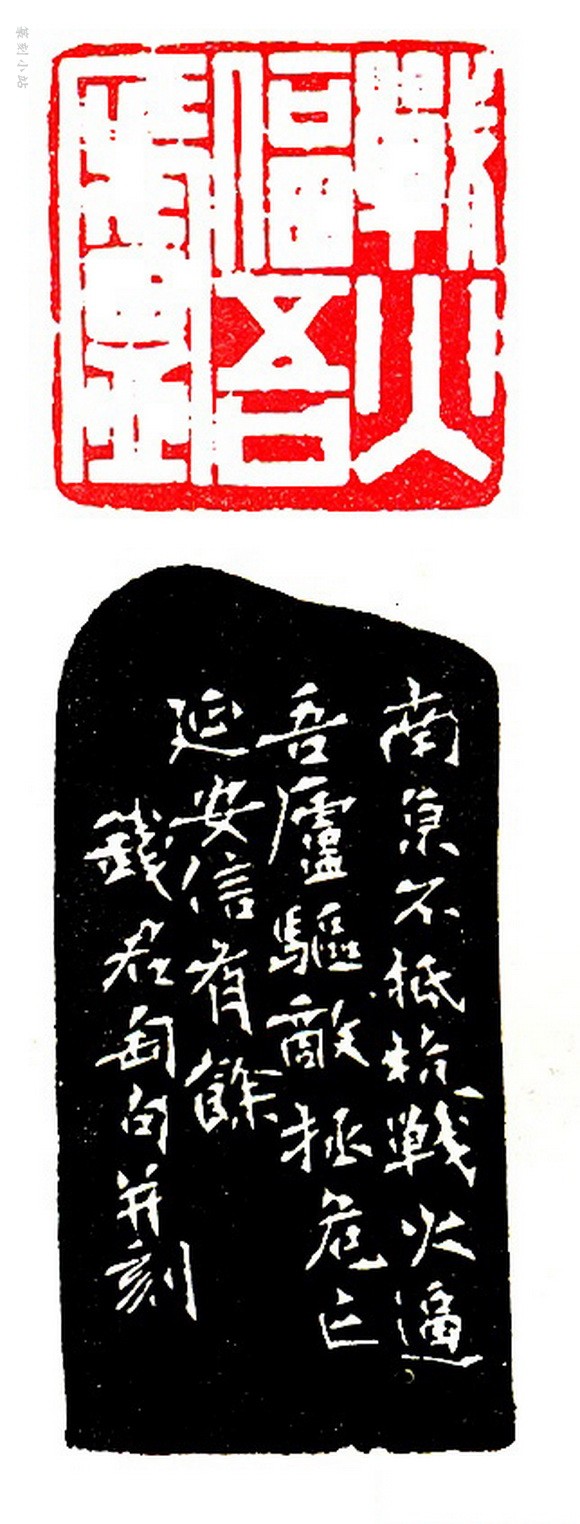 篆刻小站
戰火
偪吾
廬
南京不抵抗戰火逼
吾廬驅敵拯危亡
延安信有餘
錢君匋句并刻